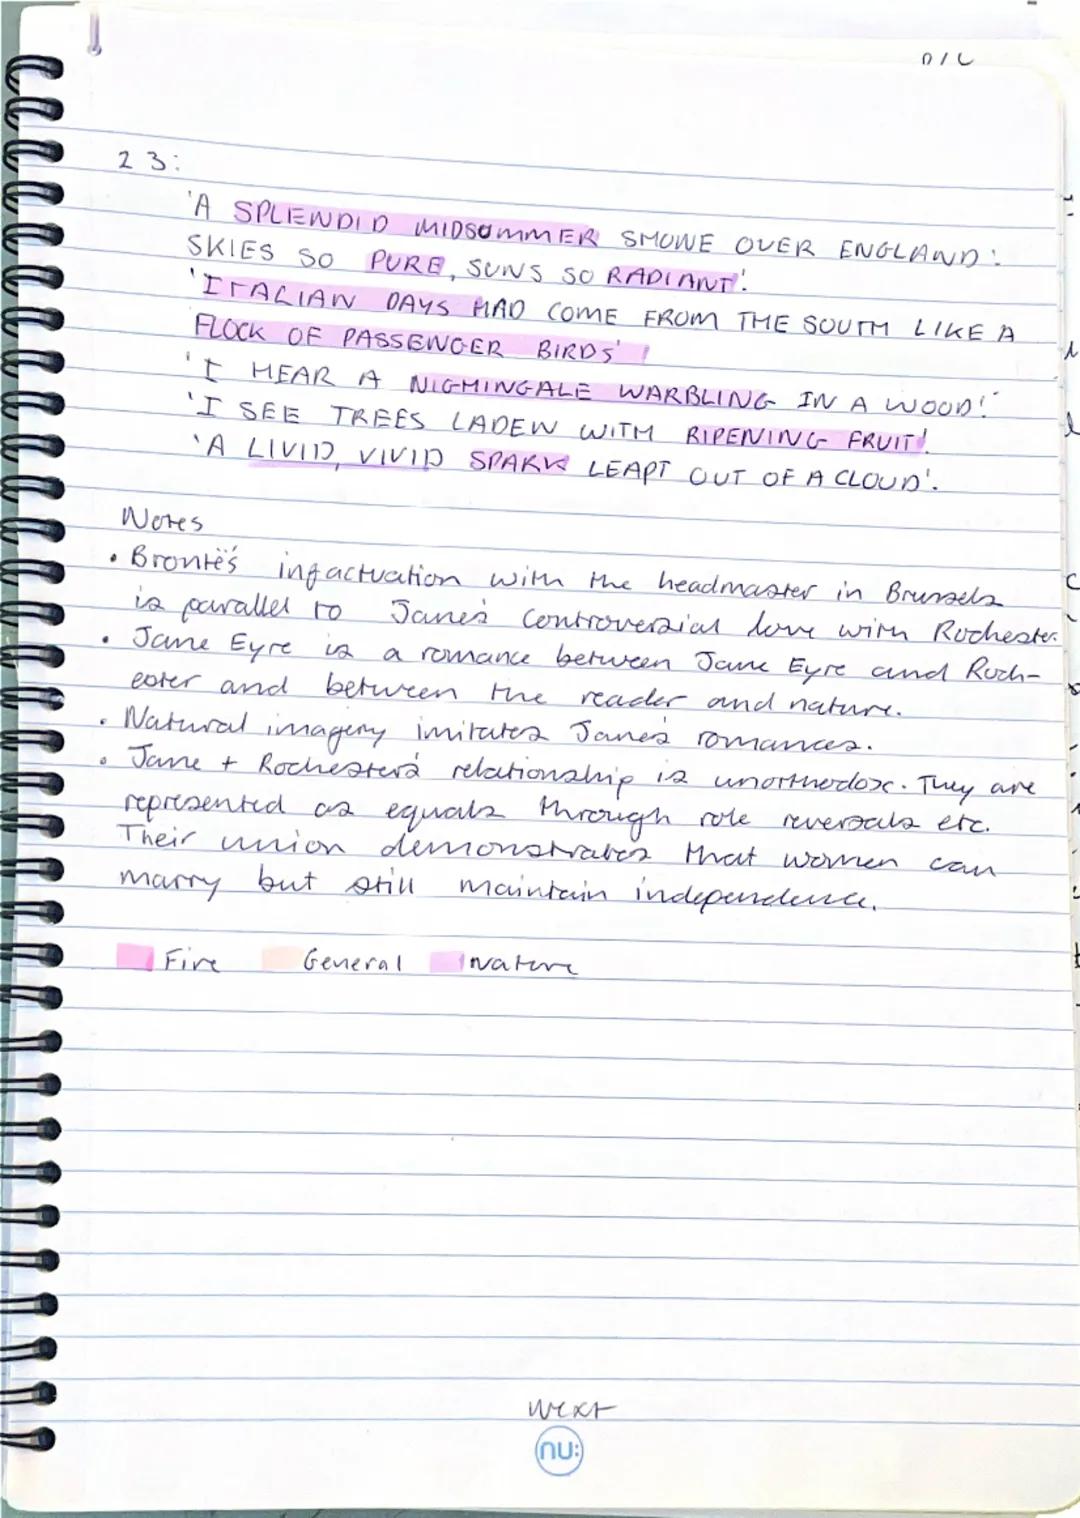 23:
'A SPLENDID MIDSUMMER SHONE OVER ENGLAND:
SKIES SO PURE, SUNS SO RADIANT'.
'ITALIAN DAYS HAD COME FROM THE SOUTH LIKE A
FLOCK OF PASSENGER BIRDS'
'I HEAR A NIGHINGALE WARBLING IN A WOOD'.
'I SEE TREES LADEN WITH RIPENING FRUIT'.
'A LIVID, VIVID SPARK LEAPT OUT OF A CLOUD'.
Notes
• Brontë's infactuation with the headmaster in Brussels
is parallel to Jane's controversial love with Rochester.
• Jane Eyre is a romance between Jane Eyre and Roch-
ester and between the reader and nature.
• Natural imagery imitates Jane's romances.
• Jane + Rochester's relationship is unorthodox. They are
represented as equals through role reversals etc.
Their union demonstrates that women can
marry but still maintain independence.
Fire General Nature
Next
nu: